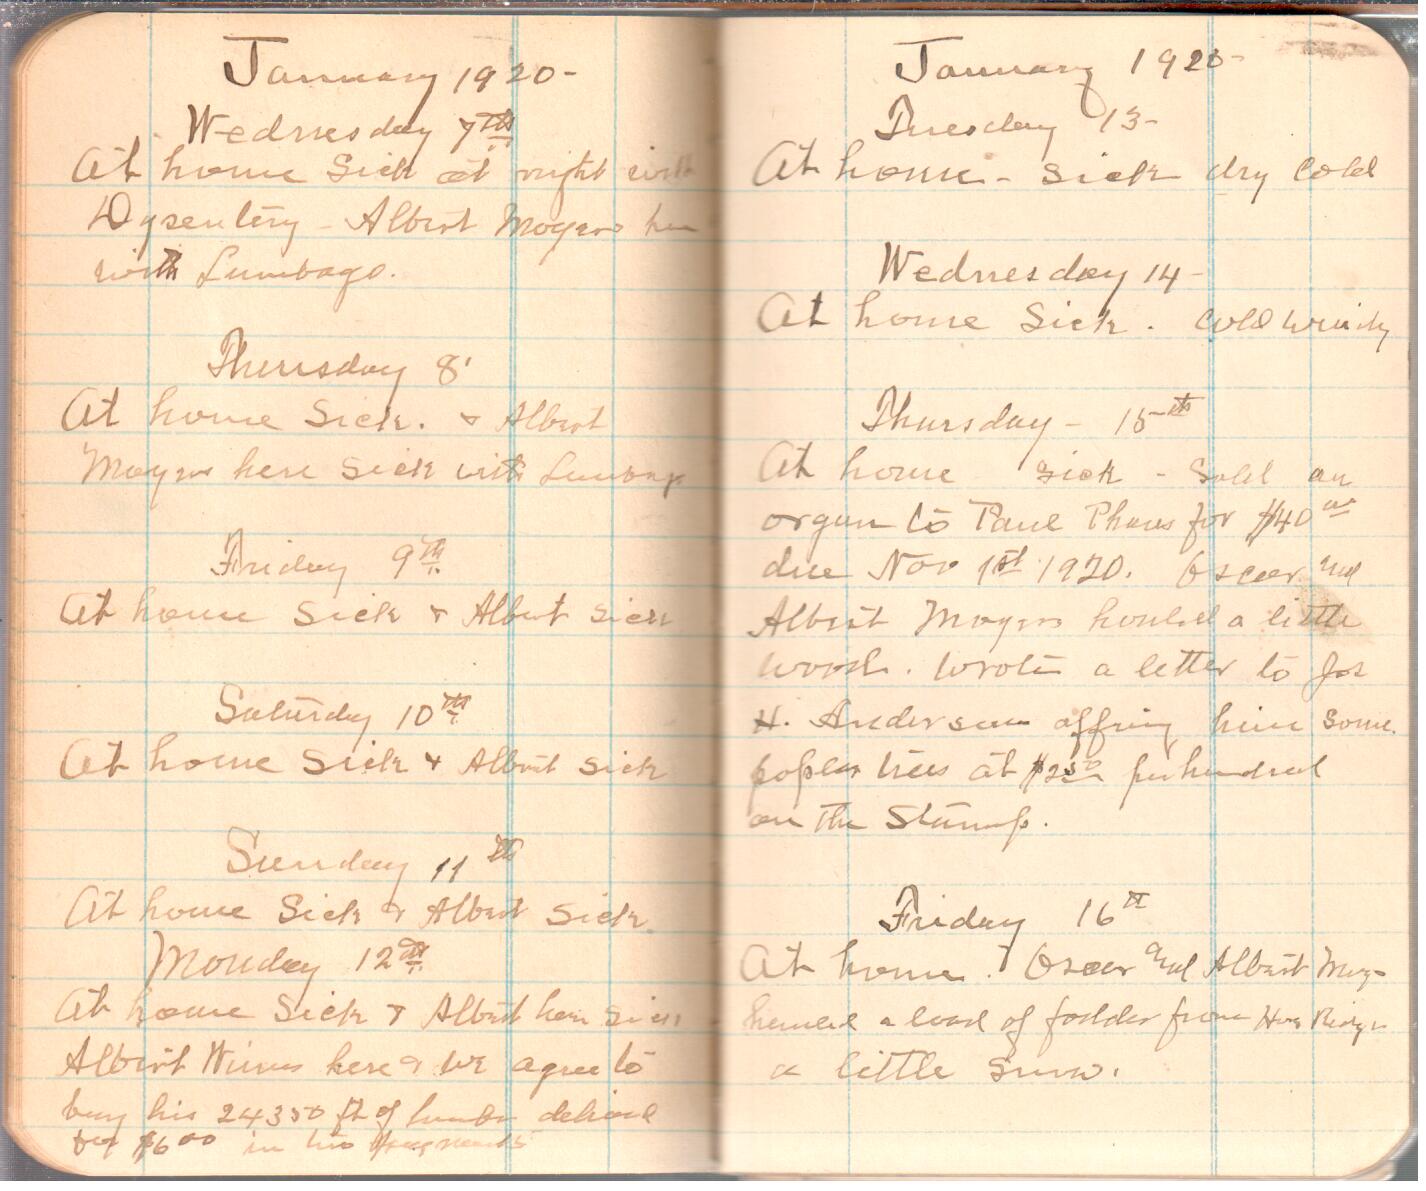 January 1920-
Wednesday 7th
At home Sick at night with
Dysentery - Albert Moyers here
with Lumbago.
Thursday 8'
At home Sick. & Albert
Moyers here Sick with Lumbago
Friday 9th
At home Sick & Albert Sick
Saturday 10th
At home Sick & Albert Sick
Sunday 11th
At home Sick & Albert Sick.
Monday 12th
At home Sick & Albert here Sick
Albert here & we agree to
buy his 24350 ft of lumber
$6 00 in two
January 1920-
Tuesday 13-
At home - Sick dry Cold
Wednesday 14-
At home Sick. Cold Windy
Thursday - 15th
At home Sick - Sold an
organ to for $40 00
due Nov 1st 1920. Oscar and
Albert Moyers hauled a little
wood. wrote a letter to Jos
H. Anderson offring him Some
poplar trees at $2 50 per hundred
on the Stump.
Friday 16th
At home. Oscar and Albert Moy-
hauled a load of fodder from
a little Snow.